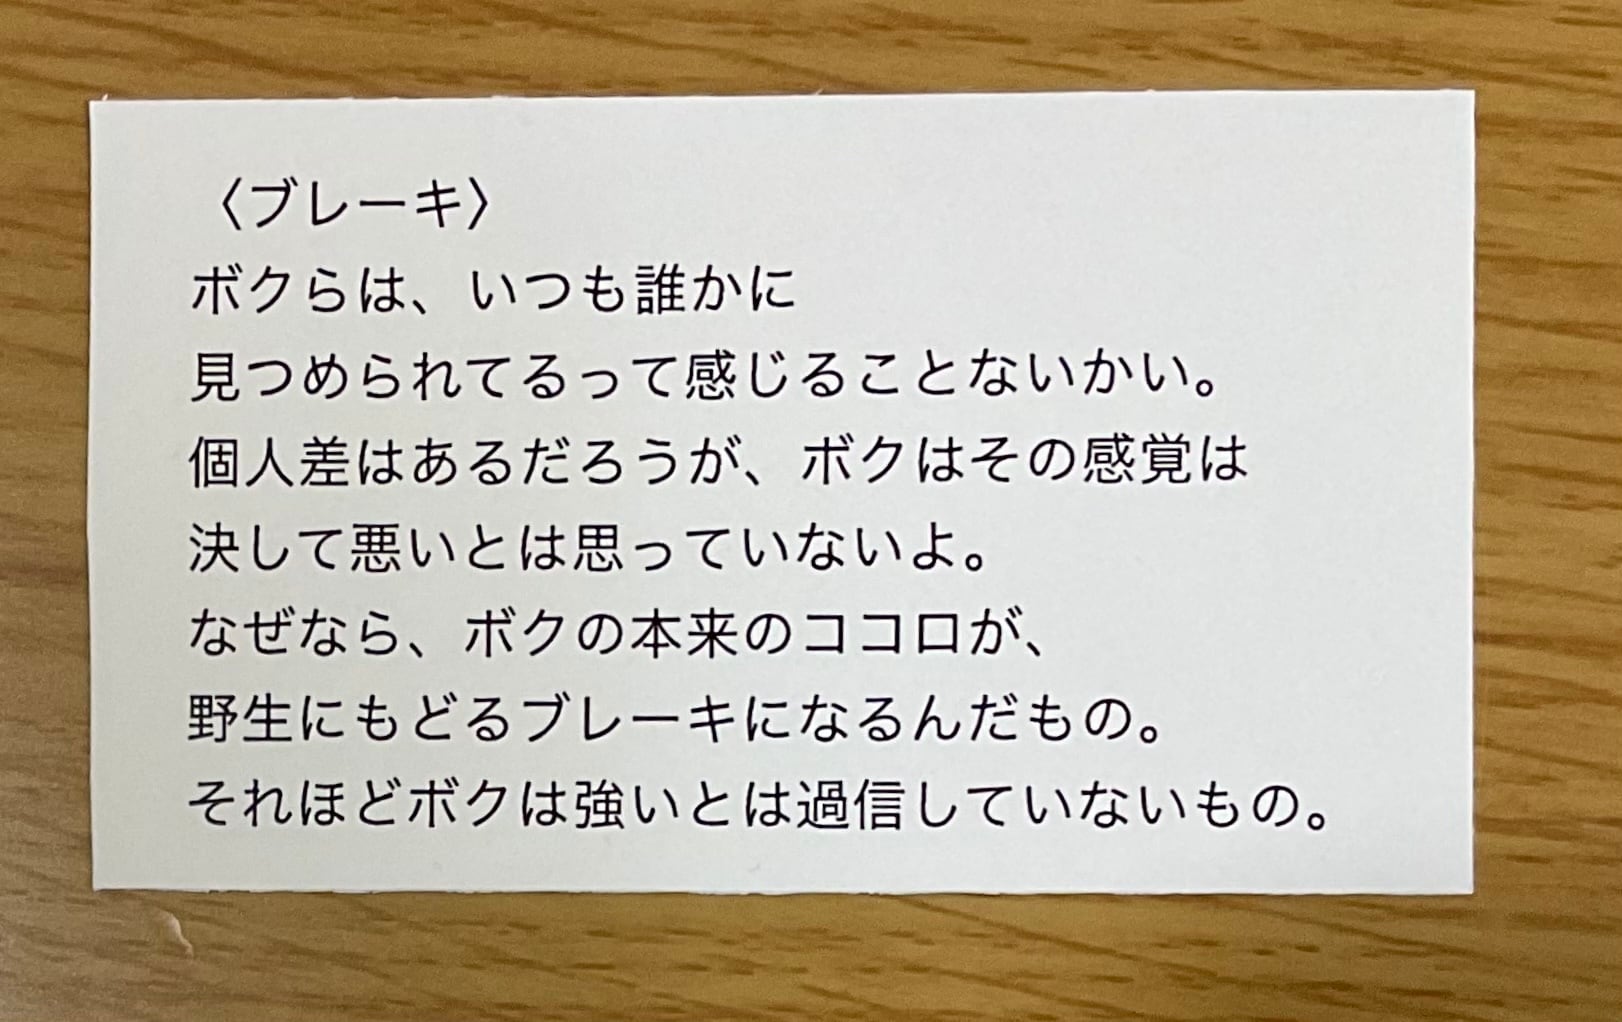 〈ブレーキ〉
ボクらは、いつも誰かに
見つめられてるって感じることないかい。
個人差はあるだろうが、ボクはその感覚は
決して悪いとは思っていないよ。
なぜなら、ボクの本来のココロが、
野生にもどるブレーキになるんだもの。
それほどボクは強いとは過信していないもの。